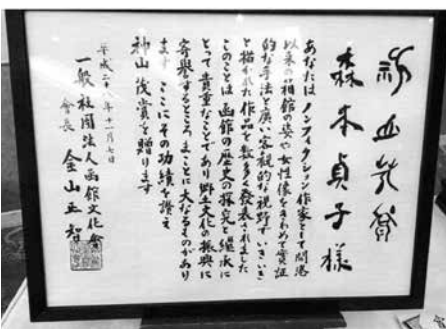 神山茂賞
森本貞子様
あなたはノンフィクション作家として開港
以来の箱館の姿や女性像をきわめて実証
的な手法と広い客観的な視野でいきいき
と描かれた作品を数多く発表されました
このことは函館の歴史の探究と継承に
とって貴重なことであり郷土文化の振興に
寄與をするところまことに大なるものがあり
ます ここにその功績を讃え
神山茂賞を贈ります
平成二十八年十一月七日
一般社団法人函館文化會
會長 金山正智